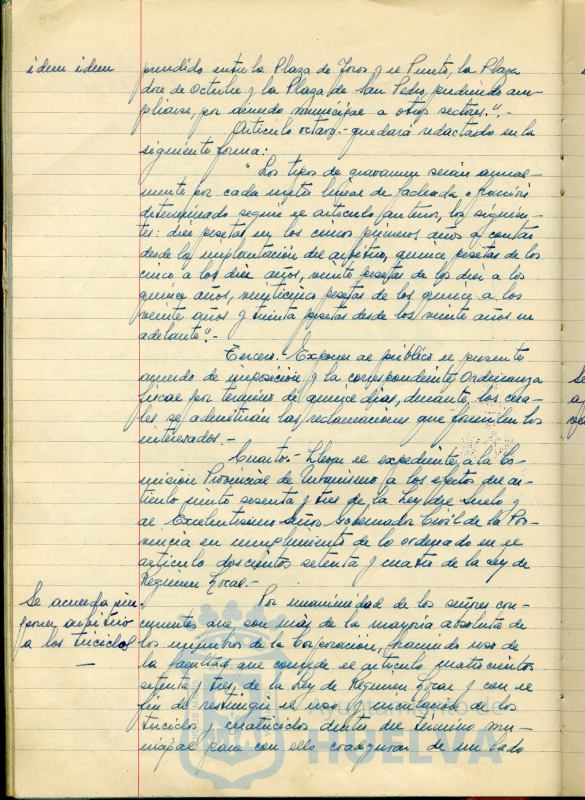 idem idem
prendido entre la Plaza de Toros y el Punto, la Plaza
doce de Octubre y la Plaza de San Pedro, pudiendo am-
pliarse, por acuerdo municipal a otros sectores.".-
Artículo octavo.- quedará redactado en la
siguiente forma:
"Los tipos de gravamen serán anual-
mente por cada metro lineal de fachada o fracción
determinado según el artículo anterior, los siguien-
tes: diez pesetas en los cinco primeros años a contar
desde la implantación del arbitrio, quince pesetas de los
cinco a los diez años, veinte pesetas de los diez a los
quince años, veinticinco pesetas de los quince a los
veinte años y treinta pesetas desde los veinte años en
adelante".-
Tercero.- Exponer al público el presente
acuerdo de imposición y la correspondiente Ordenanza
fiscal por término de quince días, durante los cua-
les se admitirán las reclamaciones que formulen los
interesados.-
Cuarto.- Elevar el expediente a la Co-
misión Provincial de Urbanismo a los efectos del ar-
tículo ciento sesenta y tres de la Ley del Suelo y
al Excelentísimo Señor Gobernador Civil de la Pro-
vincia en cumplimiento de lo ordenado en el
artículo doscientos setenta y cuatro de la Ley de
Régimen Local.-
Se acuerda im-
poner arbitrio
a los triciclos
Por unanimidad de los señores con-
currentes que son más de la mayoría absoluta de
los miembros de la Corporación, haciendo uso de
la facultad que concede el artículo cuatrocientos
setenta y tres de la Ley de Régimen Local y con el
fin de restringir el uso y circulación de los
triciclos y cuatriciclos dentro del término mu-
nicipal para con ello coadyuvar de un lado
Ayuntamiento de
HUELVA